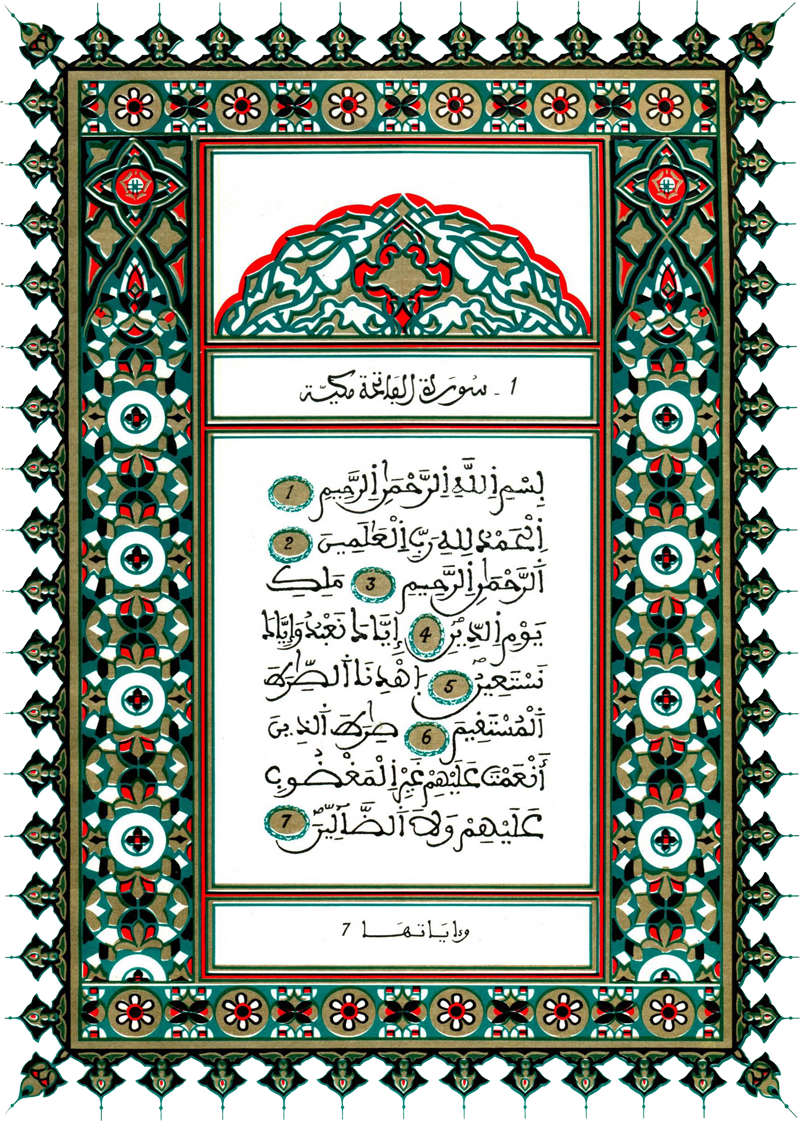 1 ـ سورة الفاتحة مكية
بِسْمِ اِ۬للَّهِ اِ۬لرَّحْمَٰنِ اِ۬لرَّحِيمِ 1
اِ۬لْحَمْدُ لِلهِ رَبِّ اِ۬لْعَٰلَمِينَ 2
اَ۬لرَّحْمَٰنِ اِ۬لرَّحِيمِ 3 مَلِكِ
يَوْمِ اِ۬لدِّينِ 4 إِيَّاكَ نَعْبُدُ وَإِيَّاكَ
نَسْتَعِينُ 5 اِ۪هْدِنَا اَ۬لصِّرَٰطَ
اَ۬لْمُسْتَفِيمَ 6 صِرَٰطَ اَ۬لذِينَ
أَنْعَمْتَ عَلَيْهِمْ غَيْرِ اِ۬لْمَغْضُوبِ
عَلَيْهِمْ وَلَا اَ۬لضَّآلِّينَ 7
وءاياتها 7